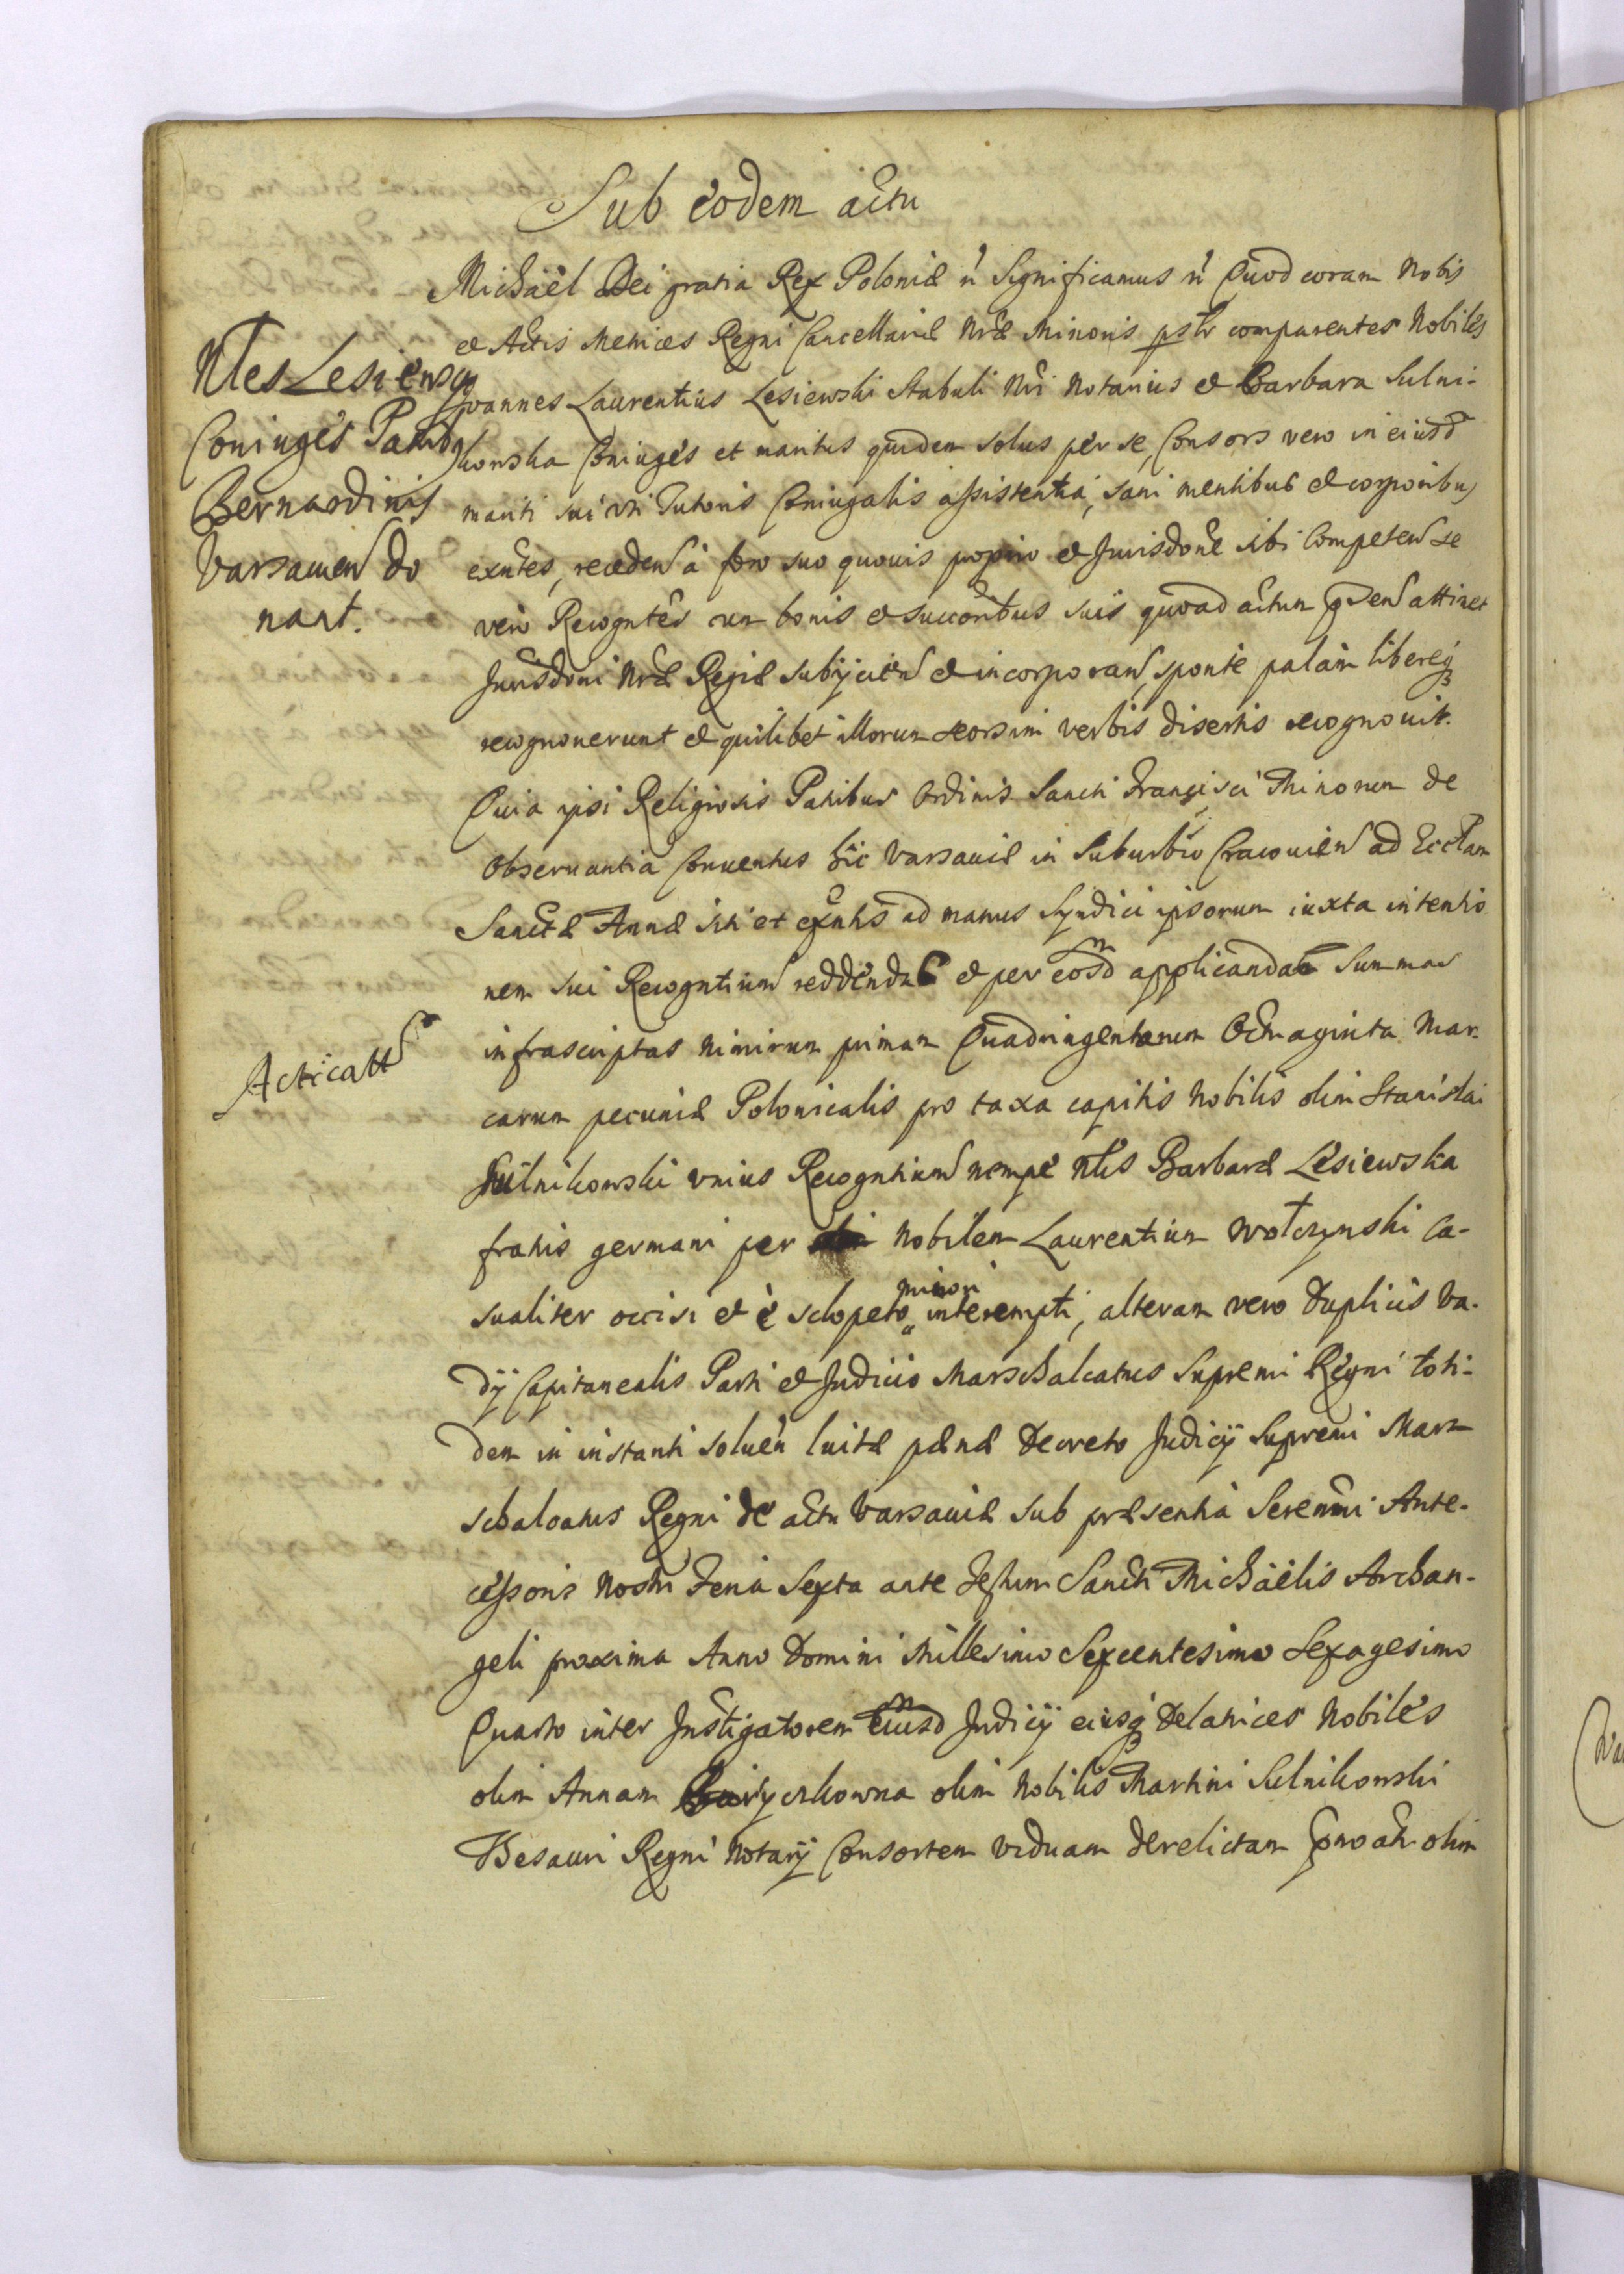 Sub eodem actu
Michäel Dei gratia Rex Poloniæ Significamus Quod coram Nobis
et Actis Metrices Regni Cancellariæ Nræ Minoris psltr comparentes Nobiles
Ntes Lesiewscy
Joannes Laurentius Lesiewski Stabuli Nri Notarius et Barbara Sulni-
Coniuges Patribq
kowska Coniuges et maritus quidem solus per se, Consors vero in eiusd
Bernardinis
mariti sui uti Tutoris Coniugalis assistentia, sani mentibus et corporibus
Varsavien do
exntes, receden à foro suo quovis proprio et Jurisdone sibi Competen se
nant.
vero Recogntes cum bonis et succoribus suis quoad actum præsen attinet
Jurisdoni Nræ Regiæ subijcien et incorporan, sponte palàm libereq
recognoverunt et quilibet illorum seorsim verbis disertis recognouit.
Quia ipsi Religiosis Patribus Ordinis Sancti Francisci Minorum de
Observantia Conventus hic Varsaviæ in Suburbio Cracovien ad Ecclam
Sanctæ Annæ siti et exntis ad manus Syndici ipsorum iuxta intentio
nem sui Recogntium reddendas et per eosdm applicandas Summas
infrascriptas nimirum primam Quadringentarum Octuaginta Mar-
Acticatt
carum pecuniæ Polonicalis pro taxa capitis Nobilis olim Stanislai
Sulnikowski unius Recogntium nempe Ntis Barbaræ Lesiewska
fratris germani per Nobilem Laurentium Wolczynski Ca-
sualiter occisi et è sclopeto minori interempti, alteram vero duplicis Va-
dij Capitanealis Parti et Judicio Marschalcatus Supremi Regni toti-
dem in instanti soluen luitæ pænæ Decreto Judicij Supremi Mar
schalcatus Regni de actu Varsaviæ sub præsentia Serenmi Ante-
cessoris Nostri Feria Sexta ante Festum Sancti Michäelis Archan-
geli proxima Anno Domini Millesimo Sexcentesimo Sexagesimo
Quarto inter Instigatorem Eiusdm Judicij eiusq Delatrices Nobiles
olim Annam olim Nobilis Martini Sulnikowski
Thesauri Regni Notarij Consortem viduam derelictam olim